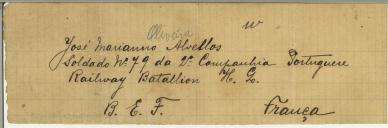 Oliveira
José Marianno Alvellos
Soldado Nº 79 da 2ª Companhia Portuguese
Railway Batallion H. Q.
B. E. F. França